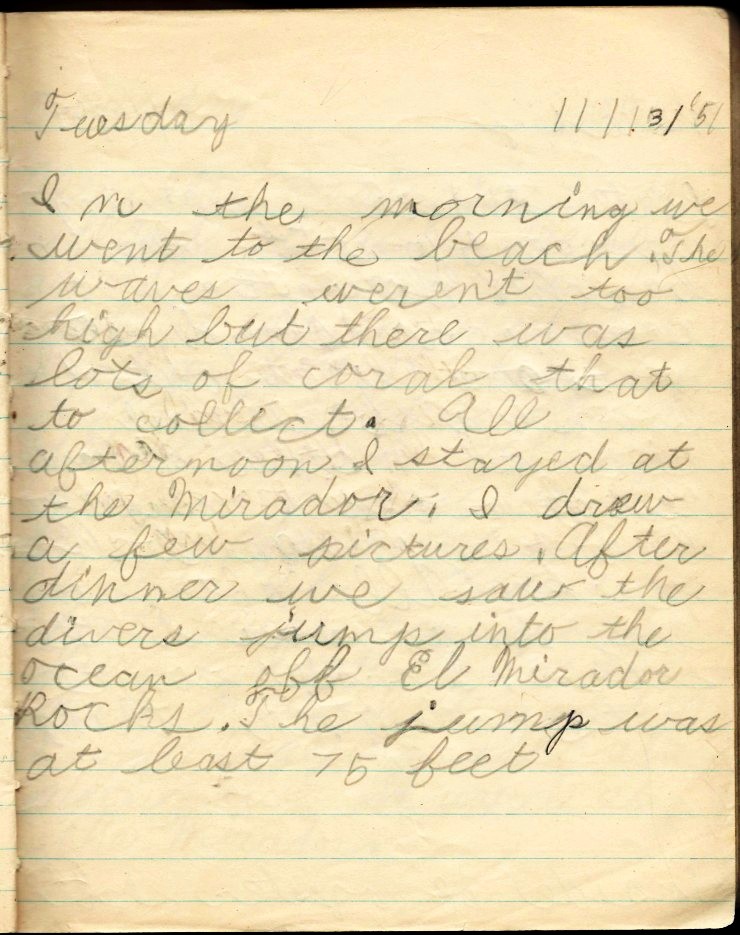 Tuesday 11/13/'51
In the morning we
went to the beach. The
waves weren't too
high but there was
lots of coral that
to collect. All
afternoon I stayed at
the Mirador. I drew
a few pictures. After
dinner we saw the
divers jump into the
ocean off El Mirador
Rocks. The jump was
at least 75 feet